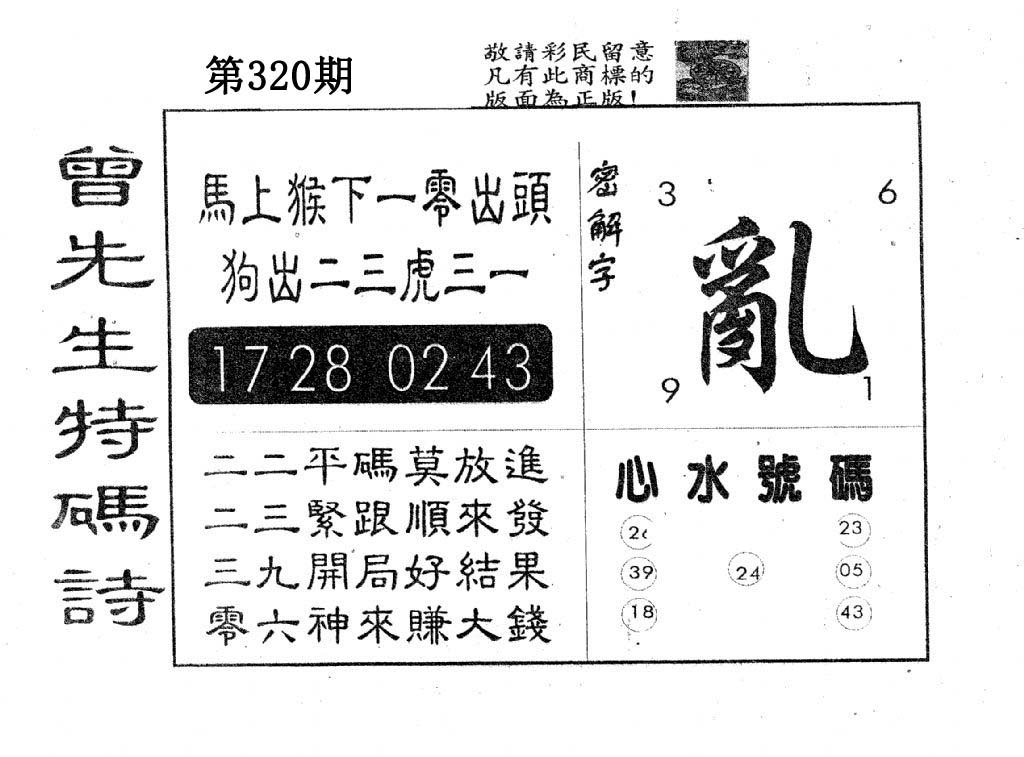 第320期
敬請彩民留意
凡有此商標的
版面為正版!
曾先生特碼詩
馬上猴下一零出頭
狗出二三虎三一
17 28 02 43
密解字
3 6
亂
9 1
二二平碼莫放進
二三緊跟順來發
三九開局好結果
零六神來賺大錢
心水號碼
26 23
39 24 05
18 43